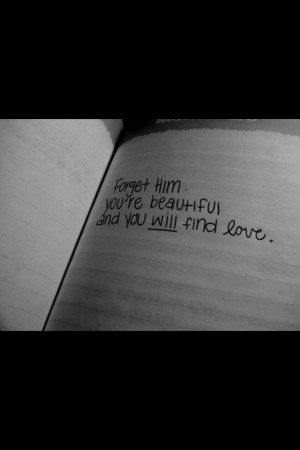 Forget Him.
you're beautiful
and you will find love.